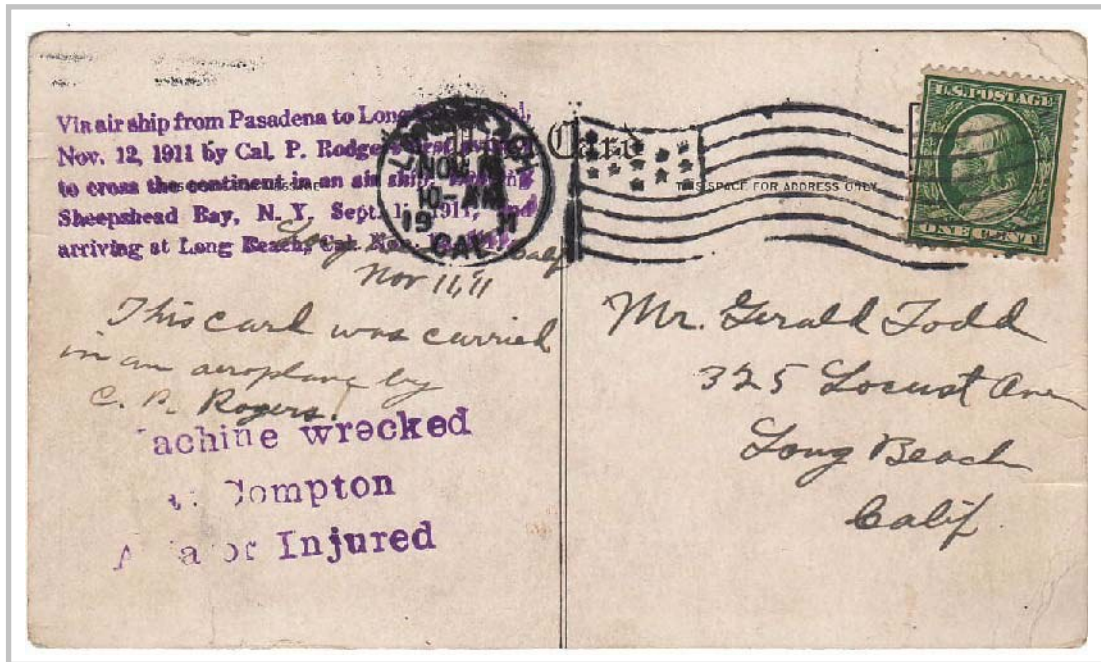 Via air ship from Pasadena to Long
Nov. 12, 1911 by Cal. P. Rodgers first
to cross the continent in an air ship,
Sheepshead Bay, N. Y. Sept. 1911,
arriving at Long Beach, Cal. Nov.
LONG BEACH
NOV
10-AM
19 11
CAL.
Card
THIS SPACE FOR ADDRESS ONLY
U.S. POSTAGE
ONE CENT
Calif
Nov 11, 11
This card was carried
in an aeroplane by
C. P. Rogers.
achine wrecked
Compton
Injured
Mr. Gerald Todd
325 Locust Ave
Long Beach
Calif.